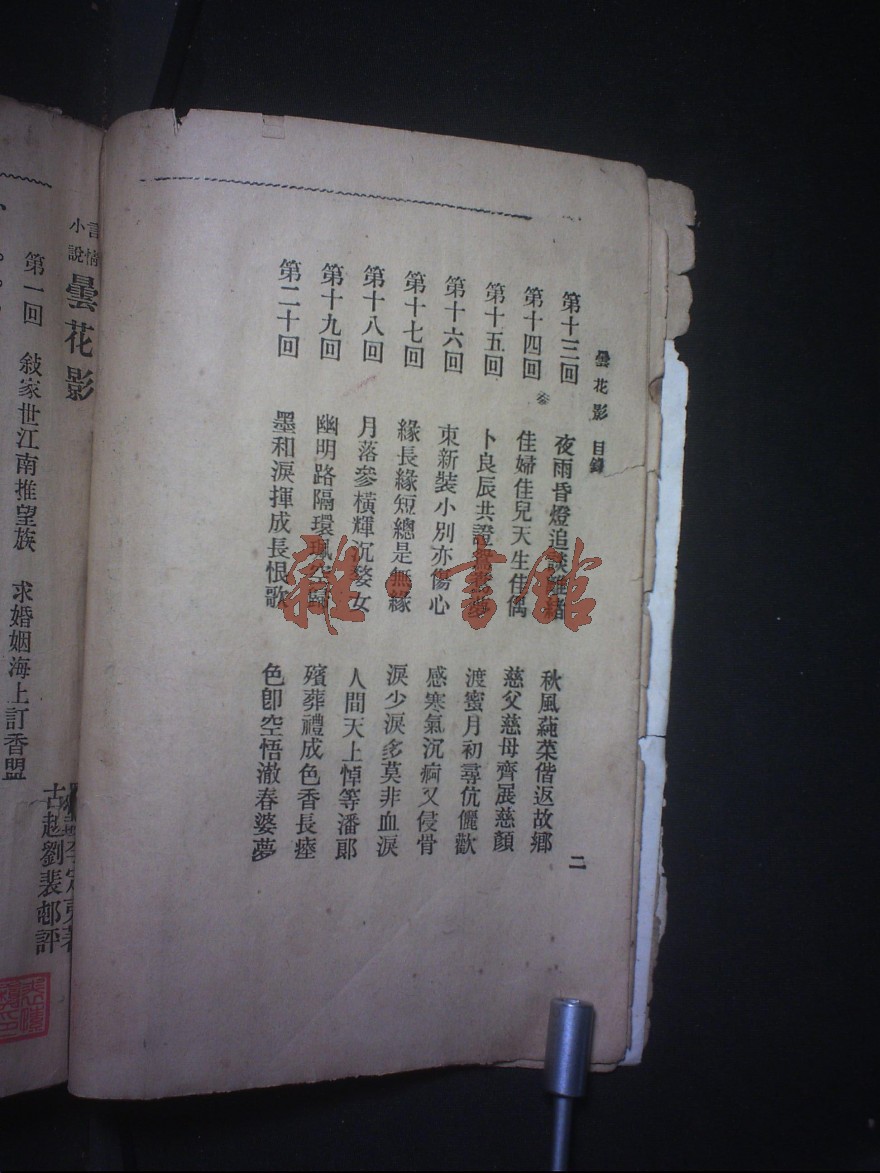 曇花影 目錄
二
第十三回 夜雨昏燈追談離緒 秋風蒓菜偕返故鄉
第十四回 佳婦佳兒天生佳偶 慈父慈母齊展慈顏
参
第十五回 卜良辰共證鴛鴦夢 渡蜜月初尋伉儷歡
第十六回 束新裝小別亦傷心 感寒氣沉痾又侵骨
第十七回 緣長緣短總是無緣 淚少淚多莫非血淚
第十八回 月落參橫輝沉婺女 人間天上悼等潘郎
第十九回 幽明路隔環珮空歸 殯葬禮成色香長瘞
第二十回 墨和淚揮成長恨歌 色卽空悟澈春婆夢
雜·書館
言情小說 曇花影
李定夷著
古越劉裴邨評
第一回 敍家世江南推望族 求婚姻海上訂香盟